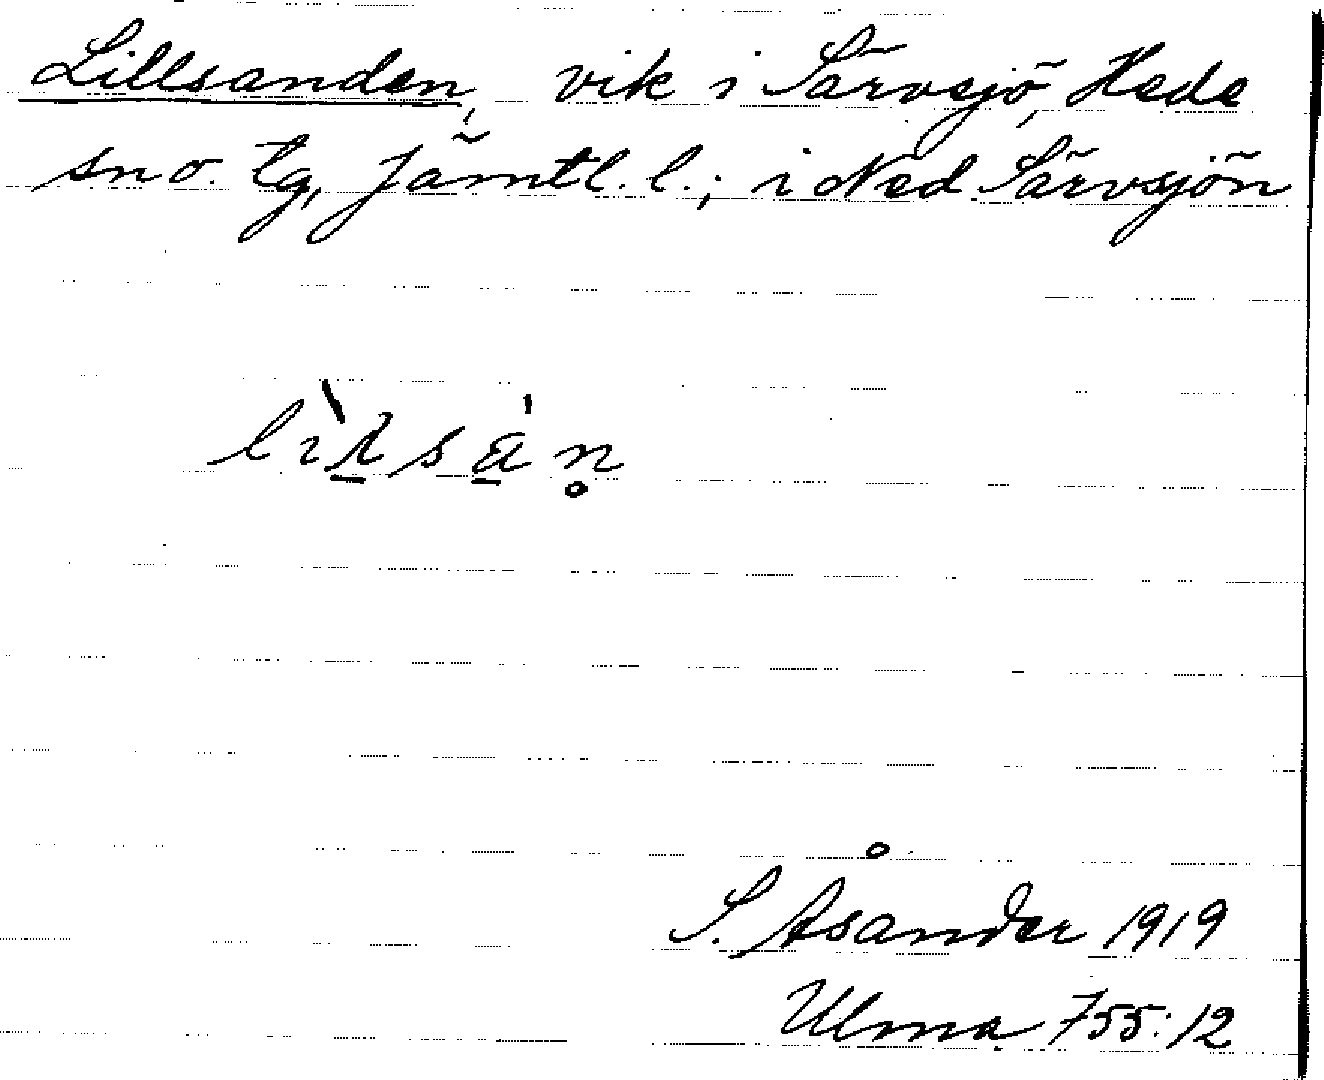 Lillsanden, vik i Särvsjö, Hede
sn o. tg, Jämtl. l.; i Ned Särvsjön
S. Åsander 1919
Ulma 755:12